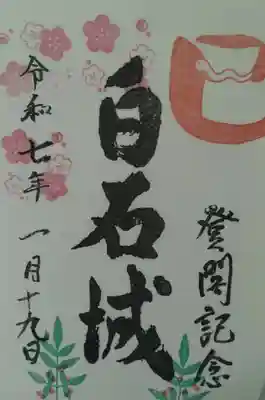 登閣記念
白石城
令和七年 一月十九日